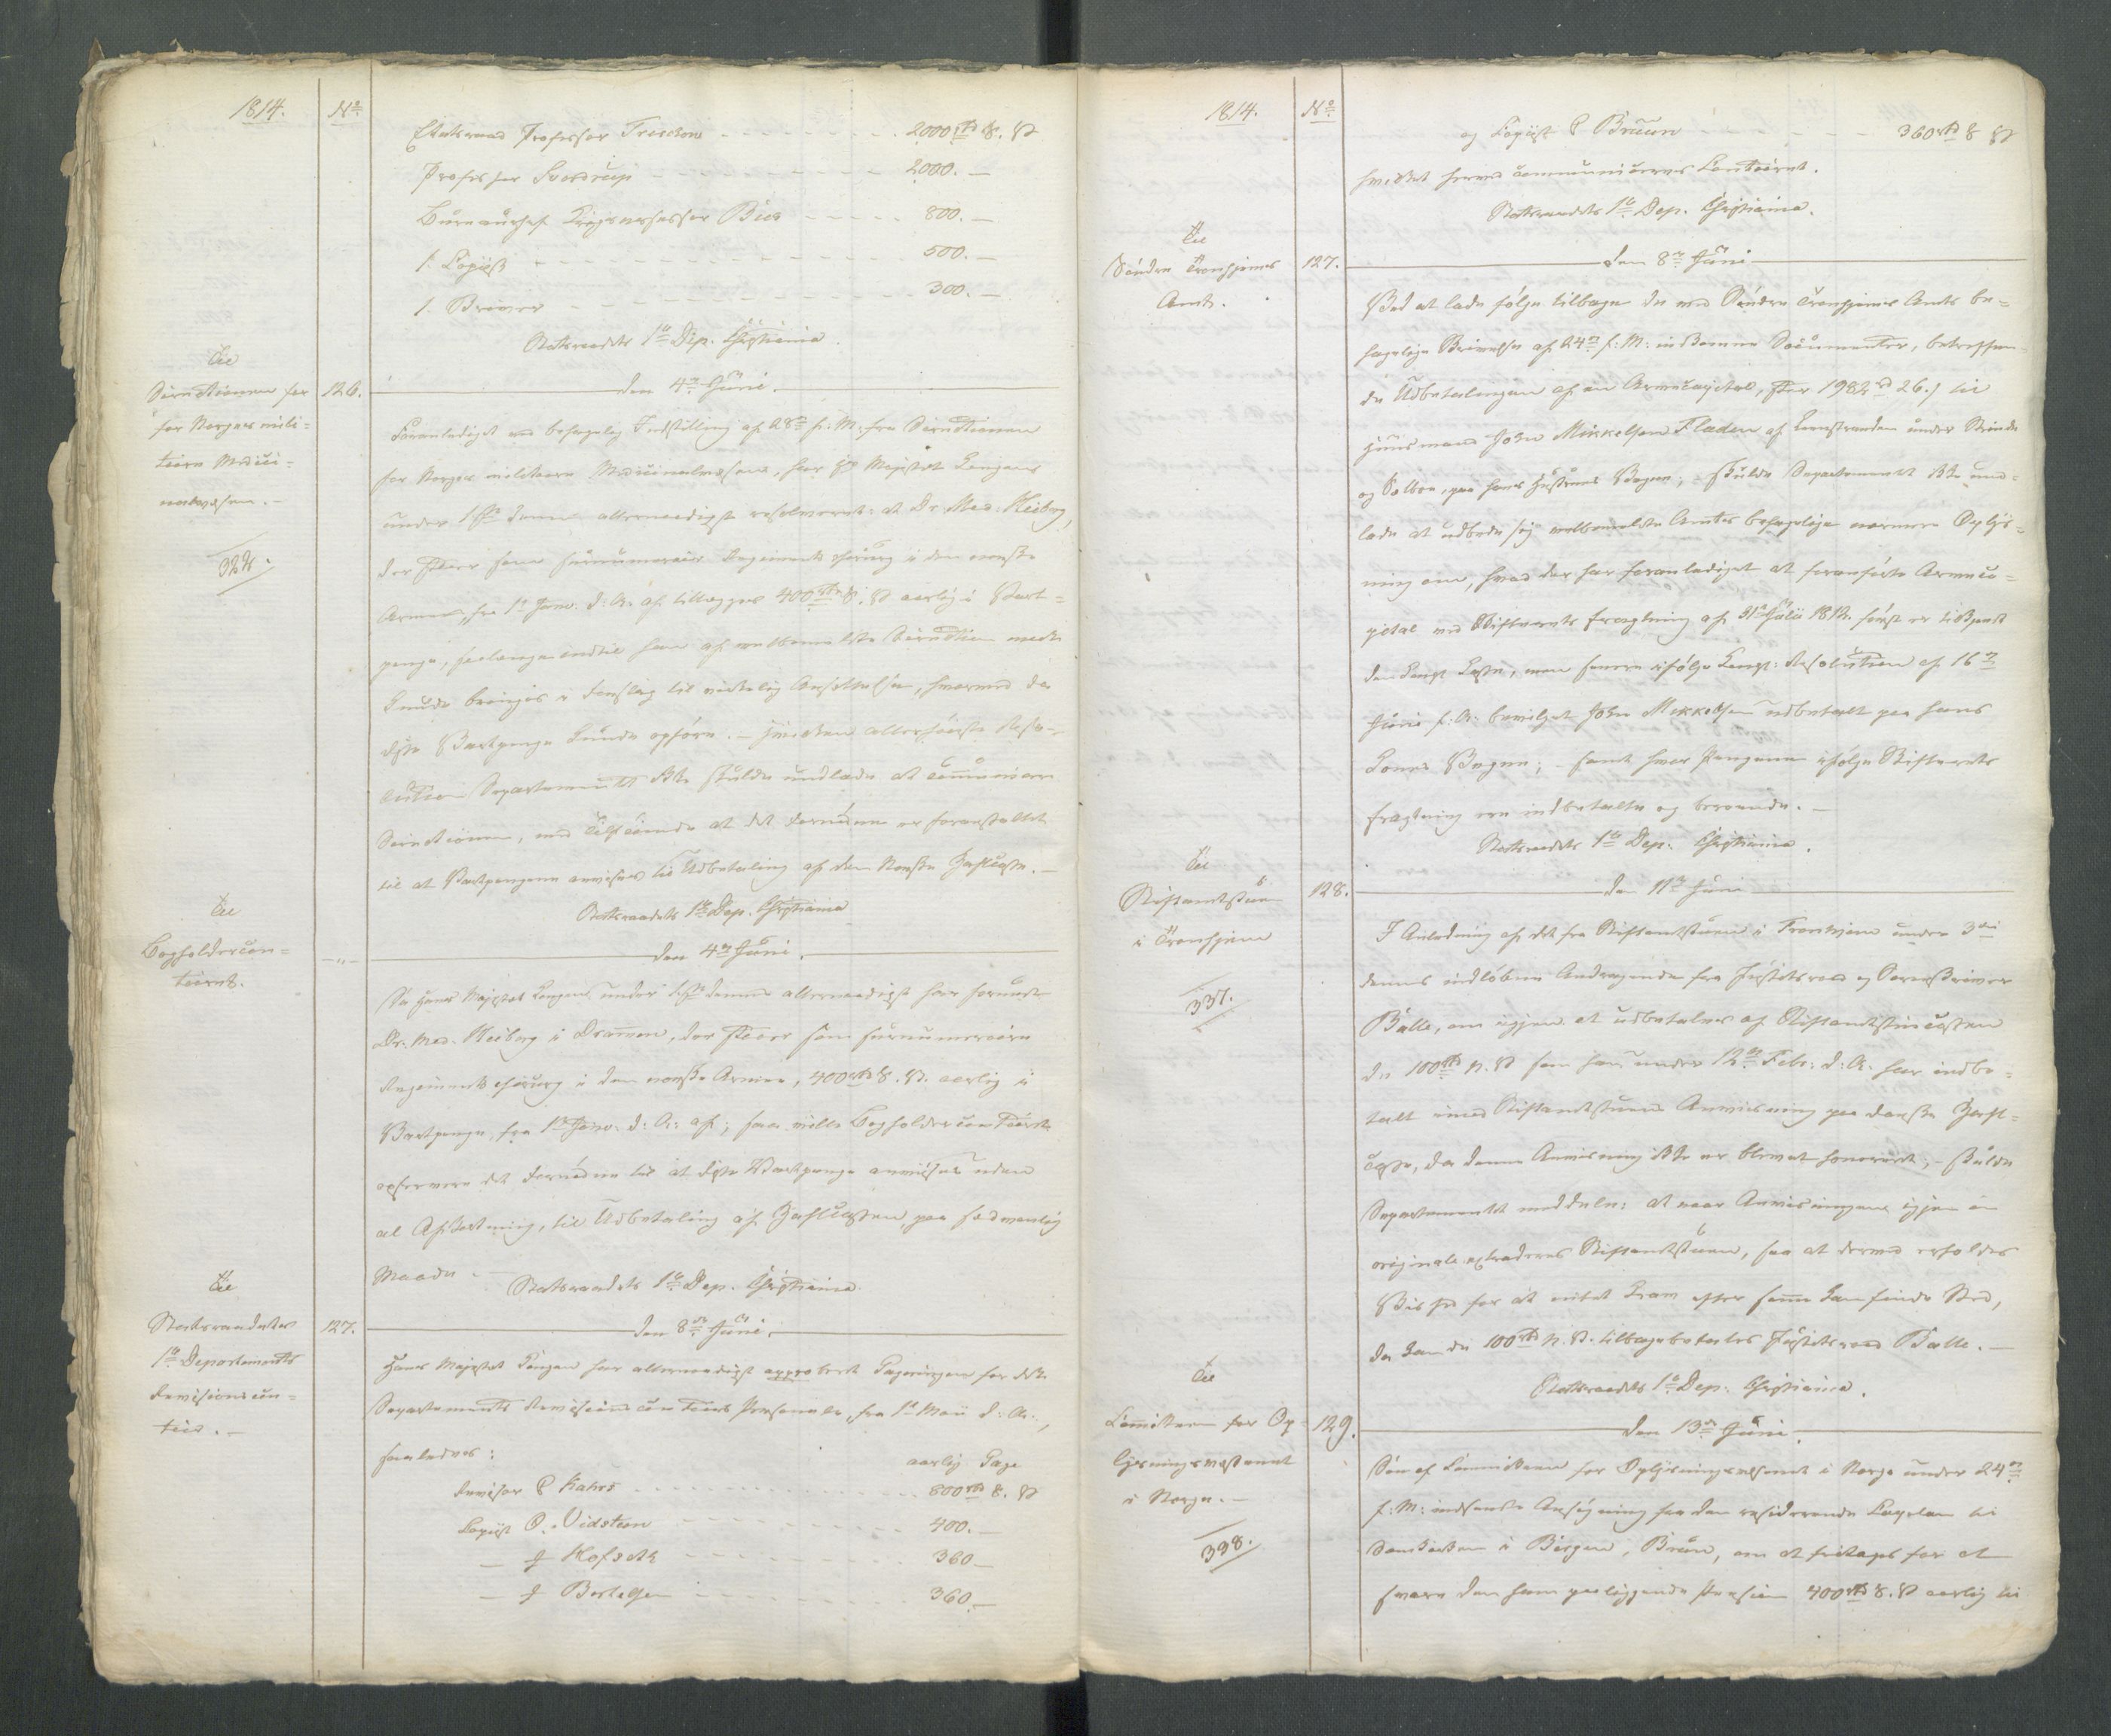 1814.
No
Etatsraad Professor Treschow 2000 rd S.V.
Professor Sverdrup 2000.—
Bureauchef Krigsassessor Bie 800.—
1. Copiist 500.—
1. 300.—
Statsraadets 1te Dep. Christiania.
Til
Directionen for
for Norges mili-
taire Medici-
nalvæsen.—
324.
126.
den 4de Junii.
Foranlediget ved behagelig Indstilling af 28de f: M: fra Directionen
for Norges militaire Medicinalvæsen, har Hs Majestet Kongen
under dennes allernaadigst resolveret: at Dr. Med: Heiberg,
der staaer som surnumerair Regiments chirurg i den norske
Armee, fra 1te Janv. d: A: af tillægges 400 rd S.V. aarlig i Vart-
penge, saalænge indtil han af velbemeldte Direction maatte
kunde bringes i Forslag til virkelig Ansættelse, hvorved da
disse Vartpenge kunde ophøre. — Hvilken allerhøieste Reso-
lution Departementet ikke skulde undlade at communicere
Directionen, med Tilføiende at det Fornødne er foranstaltet
til at Vartpengene anvises til Udbetaling af den Norske Zahlcasse.—
Statsraadets 1te Dep. Christiania
Til
Bogholdercon-
toiret.
—„—
den 4de Junii.
Da Hans Majestet Kongen under dennes allernaadigst har forundt
Dr. Med. Heiberg i Drammen, der staaer som surnumerair
Regimentschirurg i den norske Armee, 400 rd S.V. aarlig i
Vartpenge, fra 1te Janv: d: A: af; saa vilde Bogholdercontoiret
observere det Fornødne til at disse Vartpenge anvises uden
al Afkortning, til Udbetaling af Zahlcassen paa sædvanlig
Maade.—
Statsraadets 1te Dep. Christiania
Til
Statsraadets
1te Departements
Revisionscon-
toir.—
127.
den 8de Junii.
Hans Majestet Kongen har allernaadigst approberet Gageringen for dette
Departements Revisions contoirs Personale, fra 1te Maii d: A:,
saaledes:
aarlig Gage
Revisor P Kahrs 600 rd S.V.
Copiist O. Vidsteen 400.—
— J Hofseth 360—
— J Bertelsen 360.—
1814.
No
og Copiist P Bruun 360 rd S V
hvilket herved communiceres Contoiret.
Statsraadets 1te Dep. Christiania.
Til
Søndre Tronhjems
Amt.
127.
den 8de Junii
Ved at lade følge tilbage de med Søndre Tronhjems Amts be-
hagelige Skrivelse af 24de f: M: indkomne Documenter, betreffen-
de Udbetalingen af en Arvecapital, stor 1982 rd 26 s til
Huusmand John Mikkelsen Fladen af under Strinde
og Selboe, paa hans Hustrues Vegne; skulde Departementet ikke und-
lade at udbede sig velbemeldte Amtes behagelige nærmere Oplys-
ning om, hvad der har foranlediget at foranførte Arveca-
pital ved Stiftamtets Fragtning af 31te Julii 1812 først er tilkjendt
den Kongl Casse, men senere ifølge Kongl: Resolution af 16de
Junii f: A: bevilget John Mikkelsen udbetalt paa hans
Kones Vegne; — samt hvor Pengene ifølge Stiftamtets
Fragtning ere indbetalte og beroende.—
Statsraadets 1te Dep. Christiania.
Til
Stiftamtstuen
i Tronhjem
337.
128.
den 11te Junii
I Anledning af det fra Stiftamtstuen i Tronhjem under 3die
dennes indløbne Andragende fra Justitsraad og Sorenskriver
Balle, om igjen at udbetales af Stiftamtstuecassen
de 100 rd N.V. som han under 12te Febr: d: A: har indbe-
talt imod Stiftamtstuens Anviisning paa danske Zahl-
casse, da denne Anviisning ikke er blevet honoreret; — skulde
Departementet meddele: at naar Anviisningen igjen in
originale extraderes Stiftamtstuen, saa at derved erholdes
Vished for at intet Krav efter samme kan finde Sted,
da kan de 100 rd N.V. tilbagebetales Justitsraad Balle.—
Statsraadets 1te Dep: Christiania.
Til
Comiteen for Op-
lysningsvæsenet
i Norge.—
338.
129.
den 13de Junii.
Den af Committeen for Oplysningsvæsenet i Norge under 24de
f: M: indsendte Ansøgning fra den residerende Capelan til
Domkirken i Bergen, Bruun, om at fritages for at
svare den ham paaliggende Pension 400 rd S.V. aarlig til